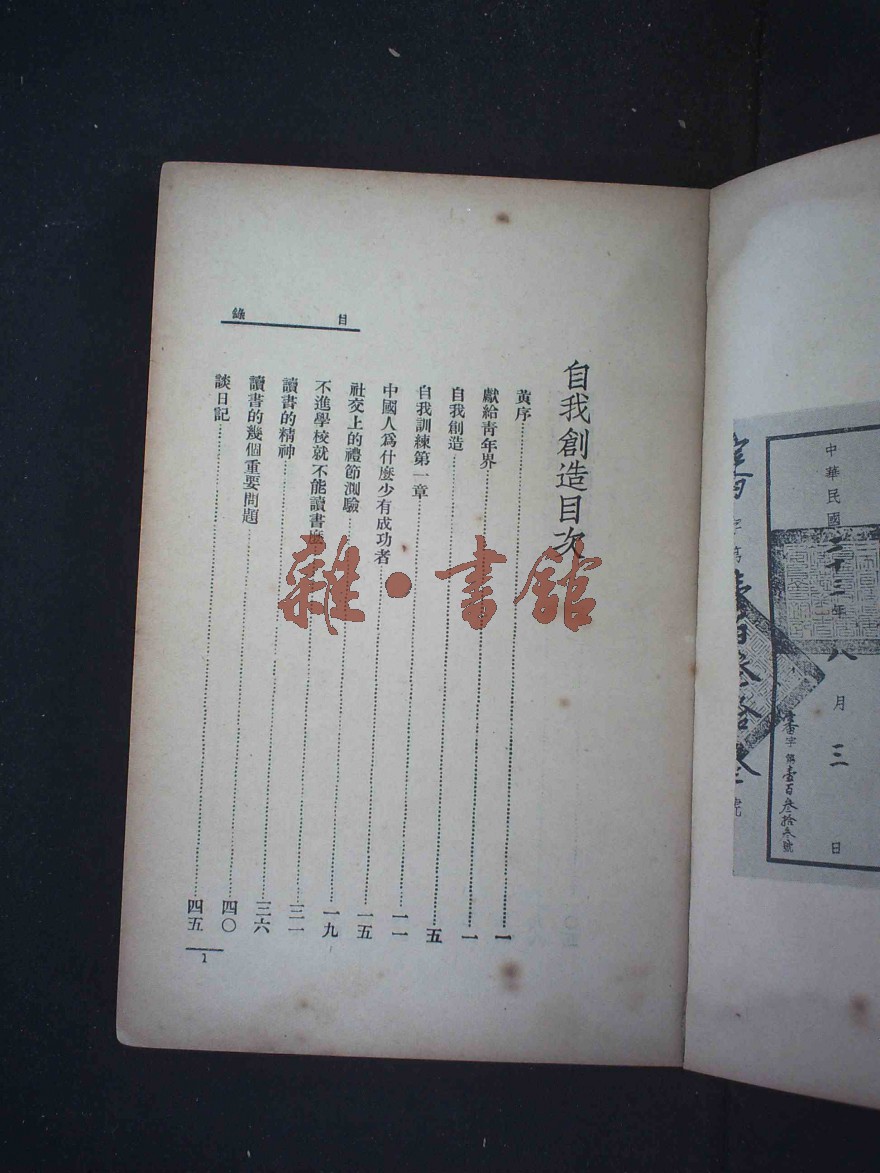 中華民國二十三年八月三日
字第壹百叁拾叁號
自我創造目次
黃序……一
獻給青年界……一
自我創造……五
自我訓練第一章……一一
中國人爲什麼少有成功者……一五
社交上的禮節測驗……一九
不進學校就不能讀書麼……三一
讀書的精神……三六
讀書的幾個重要問題……四〇
談日記……四五
目錄
1
雜·書館